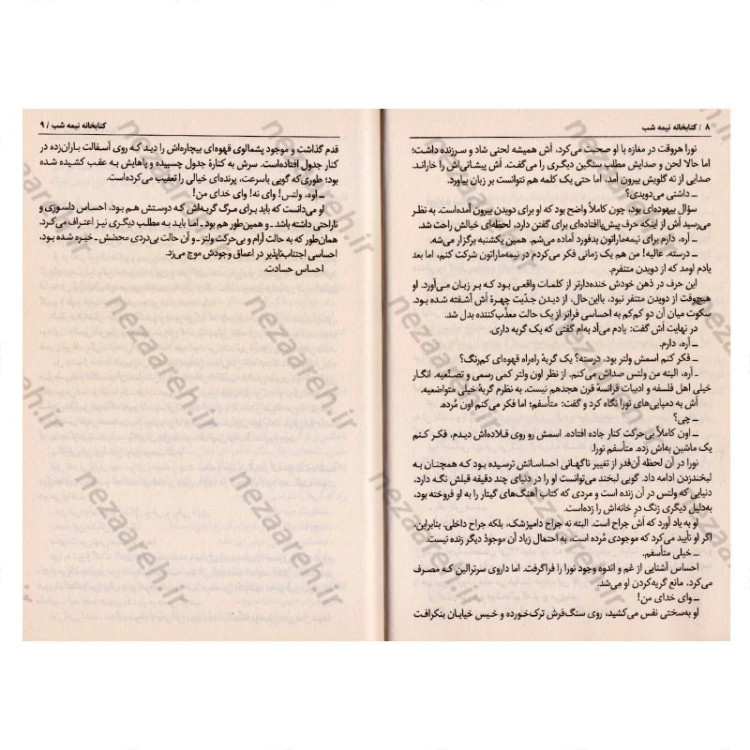 ۸ / کتابخانه نیمه شب
نورا هروقت در مغازه با او صحبت می‌کرد، اَش همیشه لحنی شاد و سرزنده داشت؛
اما حالا لحن و صدایش مطلب سنگین دیگری را می‌گفت. اَش پیشانی‌اش را خاراند.
صدایی از ته گلویش بیرون آمد، اما حتی یک کلمه هم نتوانست بر زبان بیاورد.
ـ داشتی می‌دویدی؟
سؤال بیهوده‌ای بود، چون کاملاً واضح بود که او برای دویدن بیرون آمده‌است. به نظر
می‌رسید اَش از اینکه حرف پیش‌پاافتاده‌ای برای گفتن دارد، لحظه‌ای خیالش راحت شد.
ـ آره، دارم برای نیمه‌ماراتون بدفورد آماده می‌شم. همین یکشنبه برگزار می‌شه.
ـ درسته. عالیه! من هم یک زمانی فکر می‌کردم در نیمه‌ماراتون شرکت کنم، اما بعد
یادم اومد که از دویدن متنفرم.
این حرف در ذهن خودش خنده‌دارتر از کلمات واقعی بود که بر زبان می‌آورد. او
هیچ‌وقت از دویدن متنفر نبود. بااین‌حال، از دیدن جدّیت چهرهٔ اَش آشفته شده بود.
سکوت میان آن دو کم‌کم به احساسی فراتر از یک حالت معذّب‌کننده بدل شد.
در نهایت اَش گفت: یادم می‌آد به‌ام گفتی که یک گربه داری.
ـ آره، دارم.
ـ فکر کنم اسمش ولتر بود، درسته؟ یک گربهٔ راه‌راه قهوه‌ای کم‌رنگ؟
ـ آره، البته من ولتس صداش می‌کنم. از نظر اون ولتر کمی رسمی و تصنّعیه. انگار
خیلی اهل فلسفه و ادبیات فرانسهٔ قرن هجدهم نیست. به نظرم گربهٔ خیلی متواضعیه.
اَش به دمپایی‌های نورا نگاه کرد و گفت: متأسفم؛ اما فکر می‌کنم اون مُرده.
ـ چی؟
ـ اون کاملاً بی‌حرکت کنار جاده افتاده. اسمش رو روی قلاده‌اش دیدم، فکر کنم
یک ماشین به‌اش زده. متأسفم نورا.
نورا در آن لحظه آن‌قدر از تغییر ناگهانی احساساتش ترسیده بود که همچنان به
لبخندزدن ادامه داد. گویی لبخند می‌توانست او را در دنیای چند دقیقه قبلش نگه دارد،
دنیایی که ولتس در آن زنده است و مردی که کتاب آهنگ‌های گیتار را به او فروخته بود،
به‌دلیل دیگری زنگ درِ خانه‌اش را زده‌است.
او به یاد آورد که اَش جراح است. البته نه جراح دامپزشک، بلکه جراح داخلی. بنابراین،
اگر او تأیید می‌کرد که موجودی مُرده است، به احتمال زیاد آن موجودْ دیگر زنده نیست.
ـ خیلی متأسفم.
احساس آشنایی از غم و اندوه وجود نورا را فراگرفت. اما داروی سرترالین که مصرف
می‌کرد، مانع گریه‌کردن او می‌شد.
ـ وای خدای من!
او به‌سختی نفس می‌کشید، روی سنگ‌فرش ترک‌خورده و خیس خیابان بنکرافت
کتابخانه نیمه شب / ۹
قدم گذاشت و موجود پشمالوی قهوه‌ای بیچاره‌اش را دید که روی آسفالت باران‌زده در
کنار جدول افتاده‌است. سرش به کنارهٔ جدول چسبیده و پاهایش به عقب کشیده شده
بود؛ طوری‌که گویی باسرعت، پرنده‌ای خیالی را تعقیب می‌کرده‌است.
ـ اَوه، ولتس! وای نه! وای خدای من!
او می‌دانست که باید برای مرگ گربه‌اش که دوستش هم بود، احساس دلسوزی و
ناراحتی داشته باشد ـ و همین‌طور هم بود ـ اما باید به مطلب دیگری نیز اعتراف می‌کرد.
همان‌طور که به حالت آرام و بی‌حرکت ولتر ـ و آن حالت بی‌دردی محضش ـ خیره شده بود،
احساسی اجتناب‌ناپذیر در اعماق وجودش موج می‌زد.
احساس حسادت.
nezaareh.ir